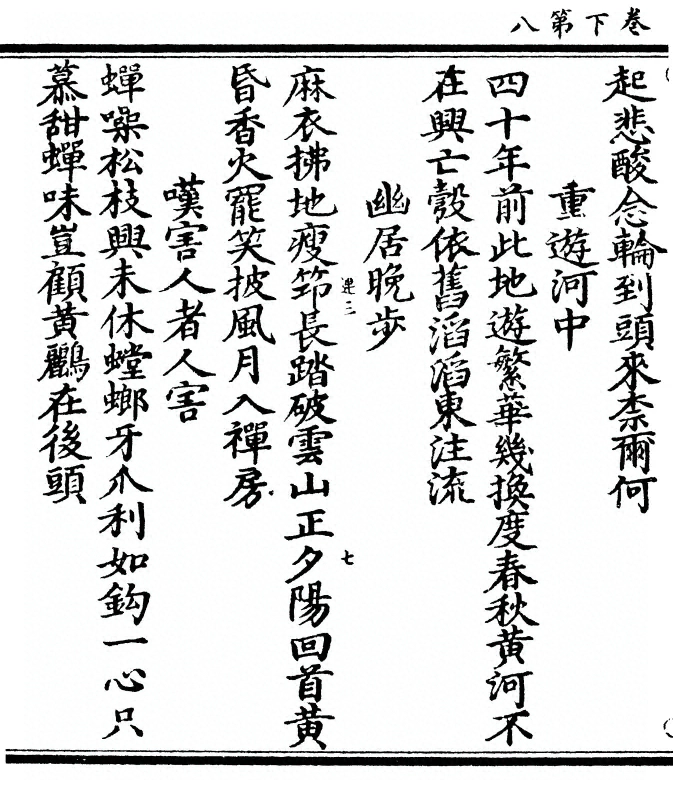 卷下第八
起悲酸念輪到頭來柰爾何
重遊河中
四十年前此地遊繁華幾換度春秋黄河不
在興亡彀依舊滔滔東注流
幽居晚步
選三
七
麻衣拂地瘦笻長踏破雲山正夕陽回首黄
昏香火罷笑披風月入禪房
嘆害人者人害
蟬噪松枝興未休螳螂牙爪利如鈎一心只
慕甜蟬味豈顧黄鸝在後頭